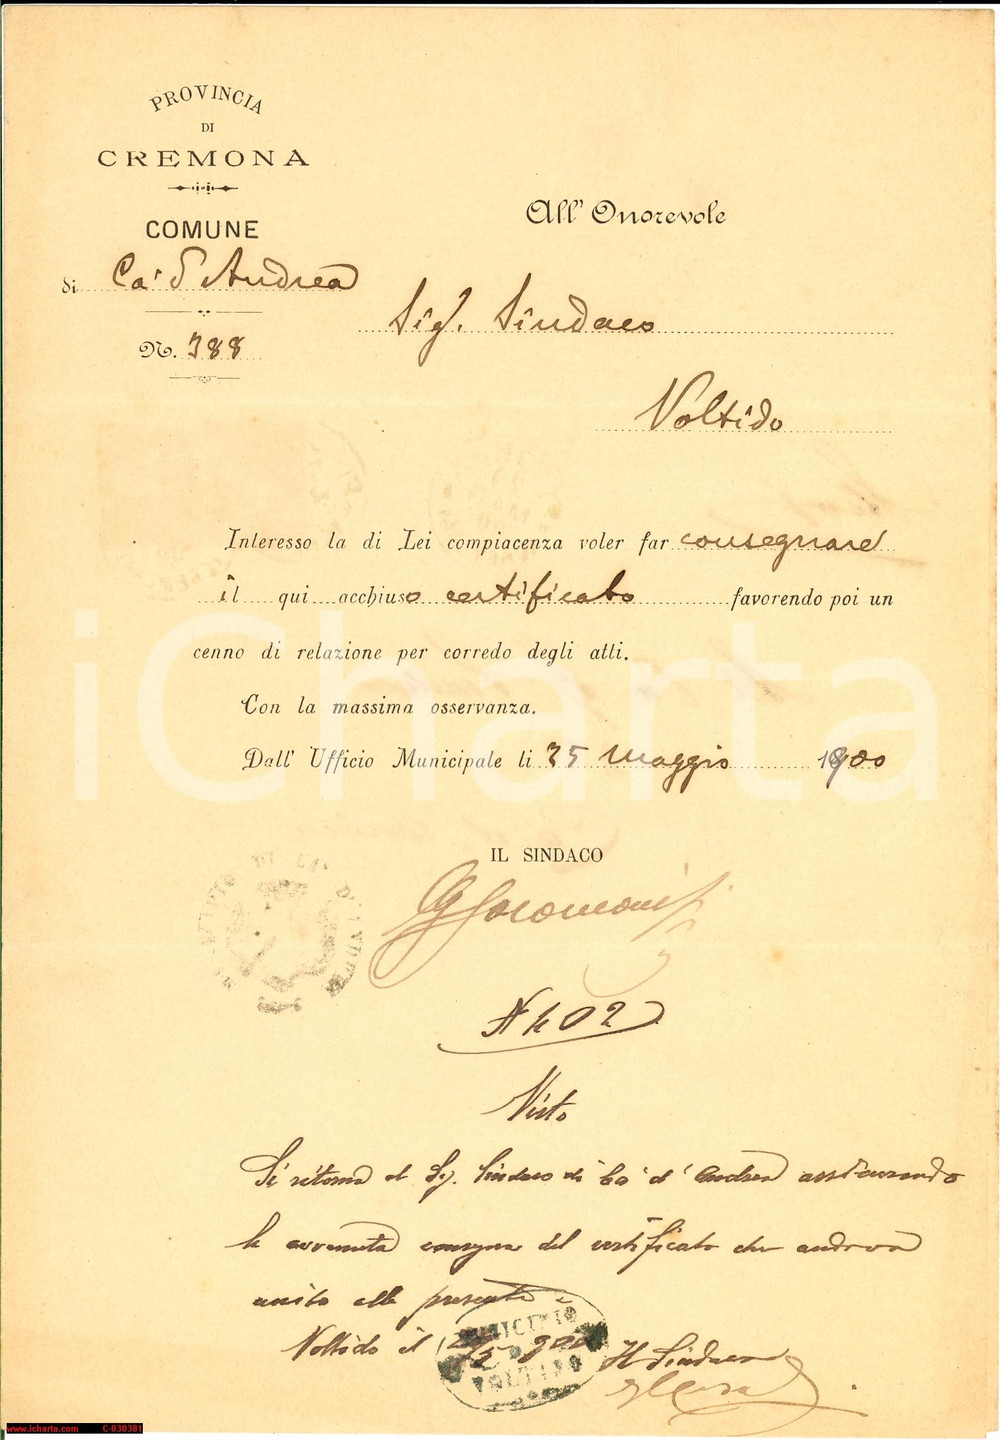 PROVINCIA
DI
CREMONA
COMUNE
di Ca' d'Andrea
N. 388
All' Onorevole
Sig. Sindaco
Voltido
Interesso la di Lei compiacenza voler far consegnare
il qui acchiuso certificato favorendo poi un
cenno di relazione per corredo degli atti.
Con la massima osservanza.
Dall' Ufficio Municipale li 25 Maggio 1900
IL SINDACO
N 402
Visto
Si ritorna al Sig. Sindaco di Ca' d'Andrea assicurando
la avvenuta consegna del certificato che andava
unito alla presente
Voltido il 5 900 Il Sindaco
MUNICIPIO
DI
VOLTIDO
iCharta
www.icharta.com C-030381